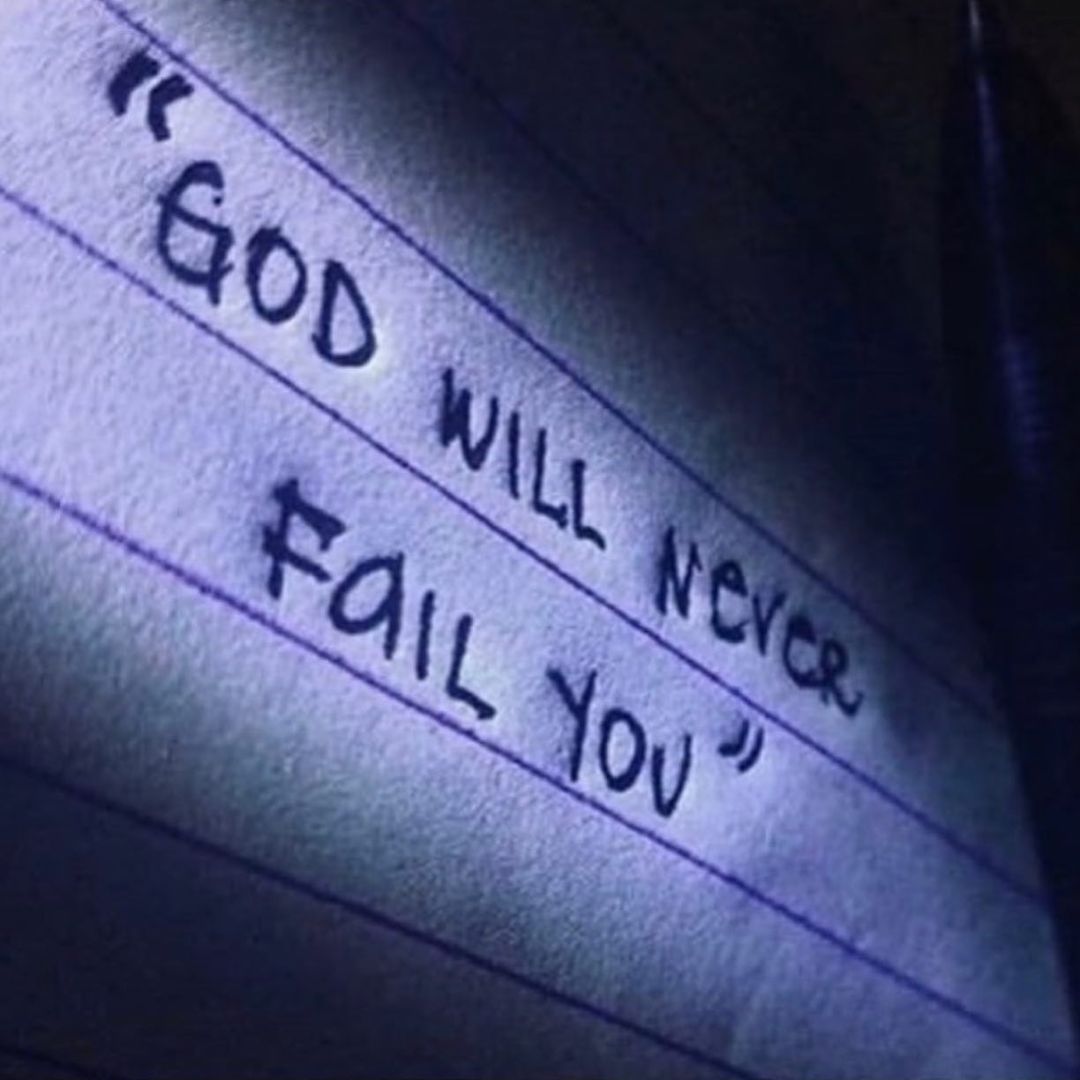 "GOD WILL NeveR
FaIL YOU"